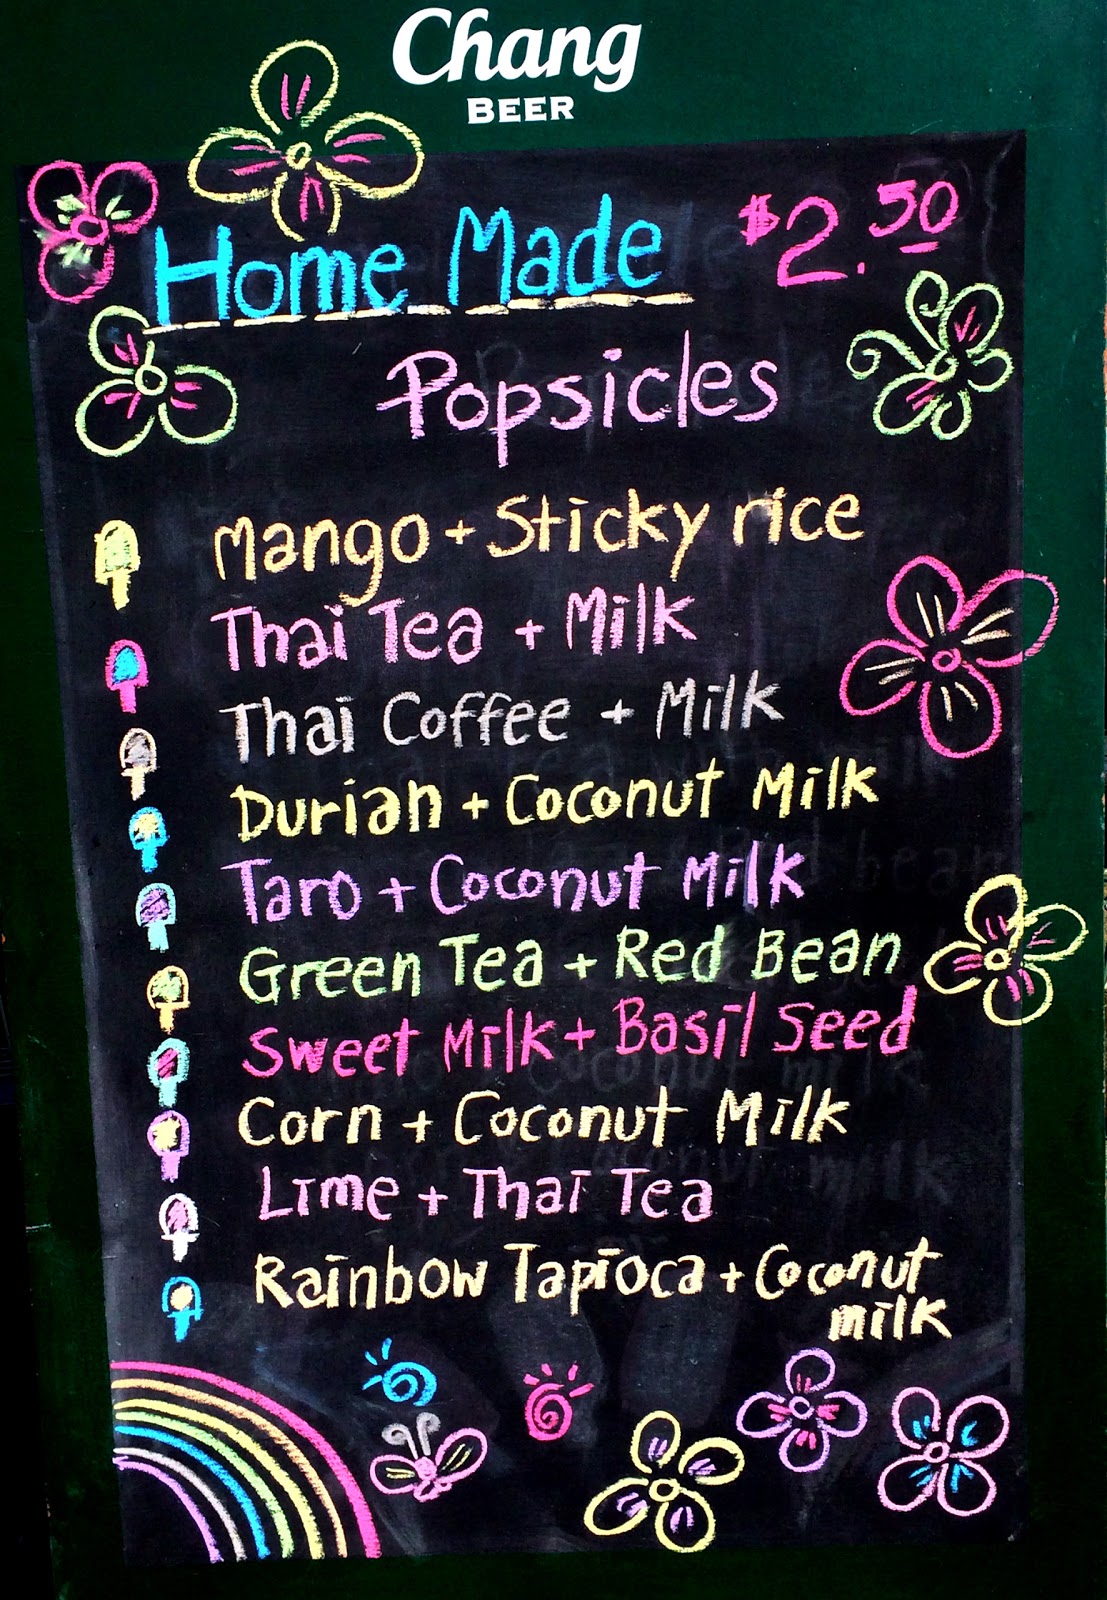 Chang
BEER
Home Made $2.50
Popsicles
Mango + Sticky rice
Thai Tea + Milk
Thai Coffee + Milk
Durian + Coconut Milk
Taro + Coconut Milk
Green Tea + Red Bean
Sweet Milk + Basil Seed
Corn + Coconut Milk
Lime + Thai Tea
Rainbow Tapioca + Coconut
milk